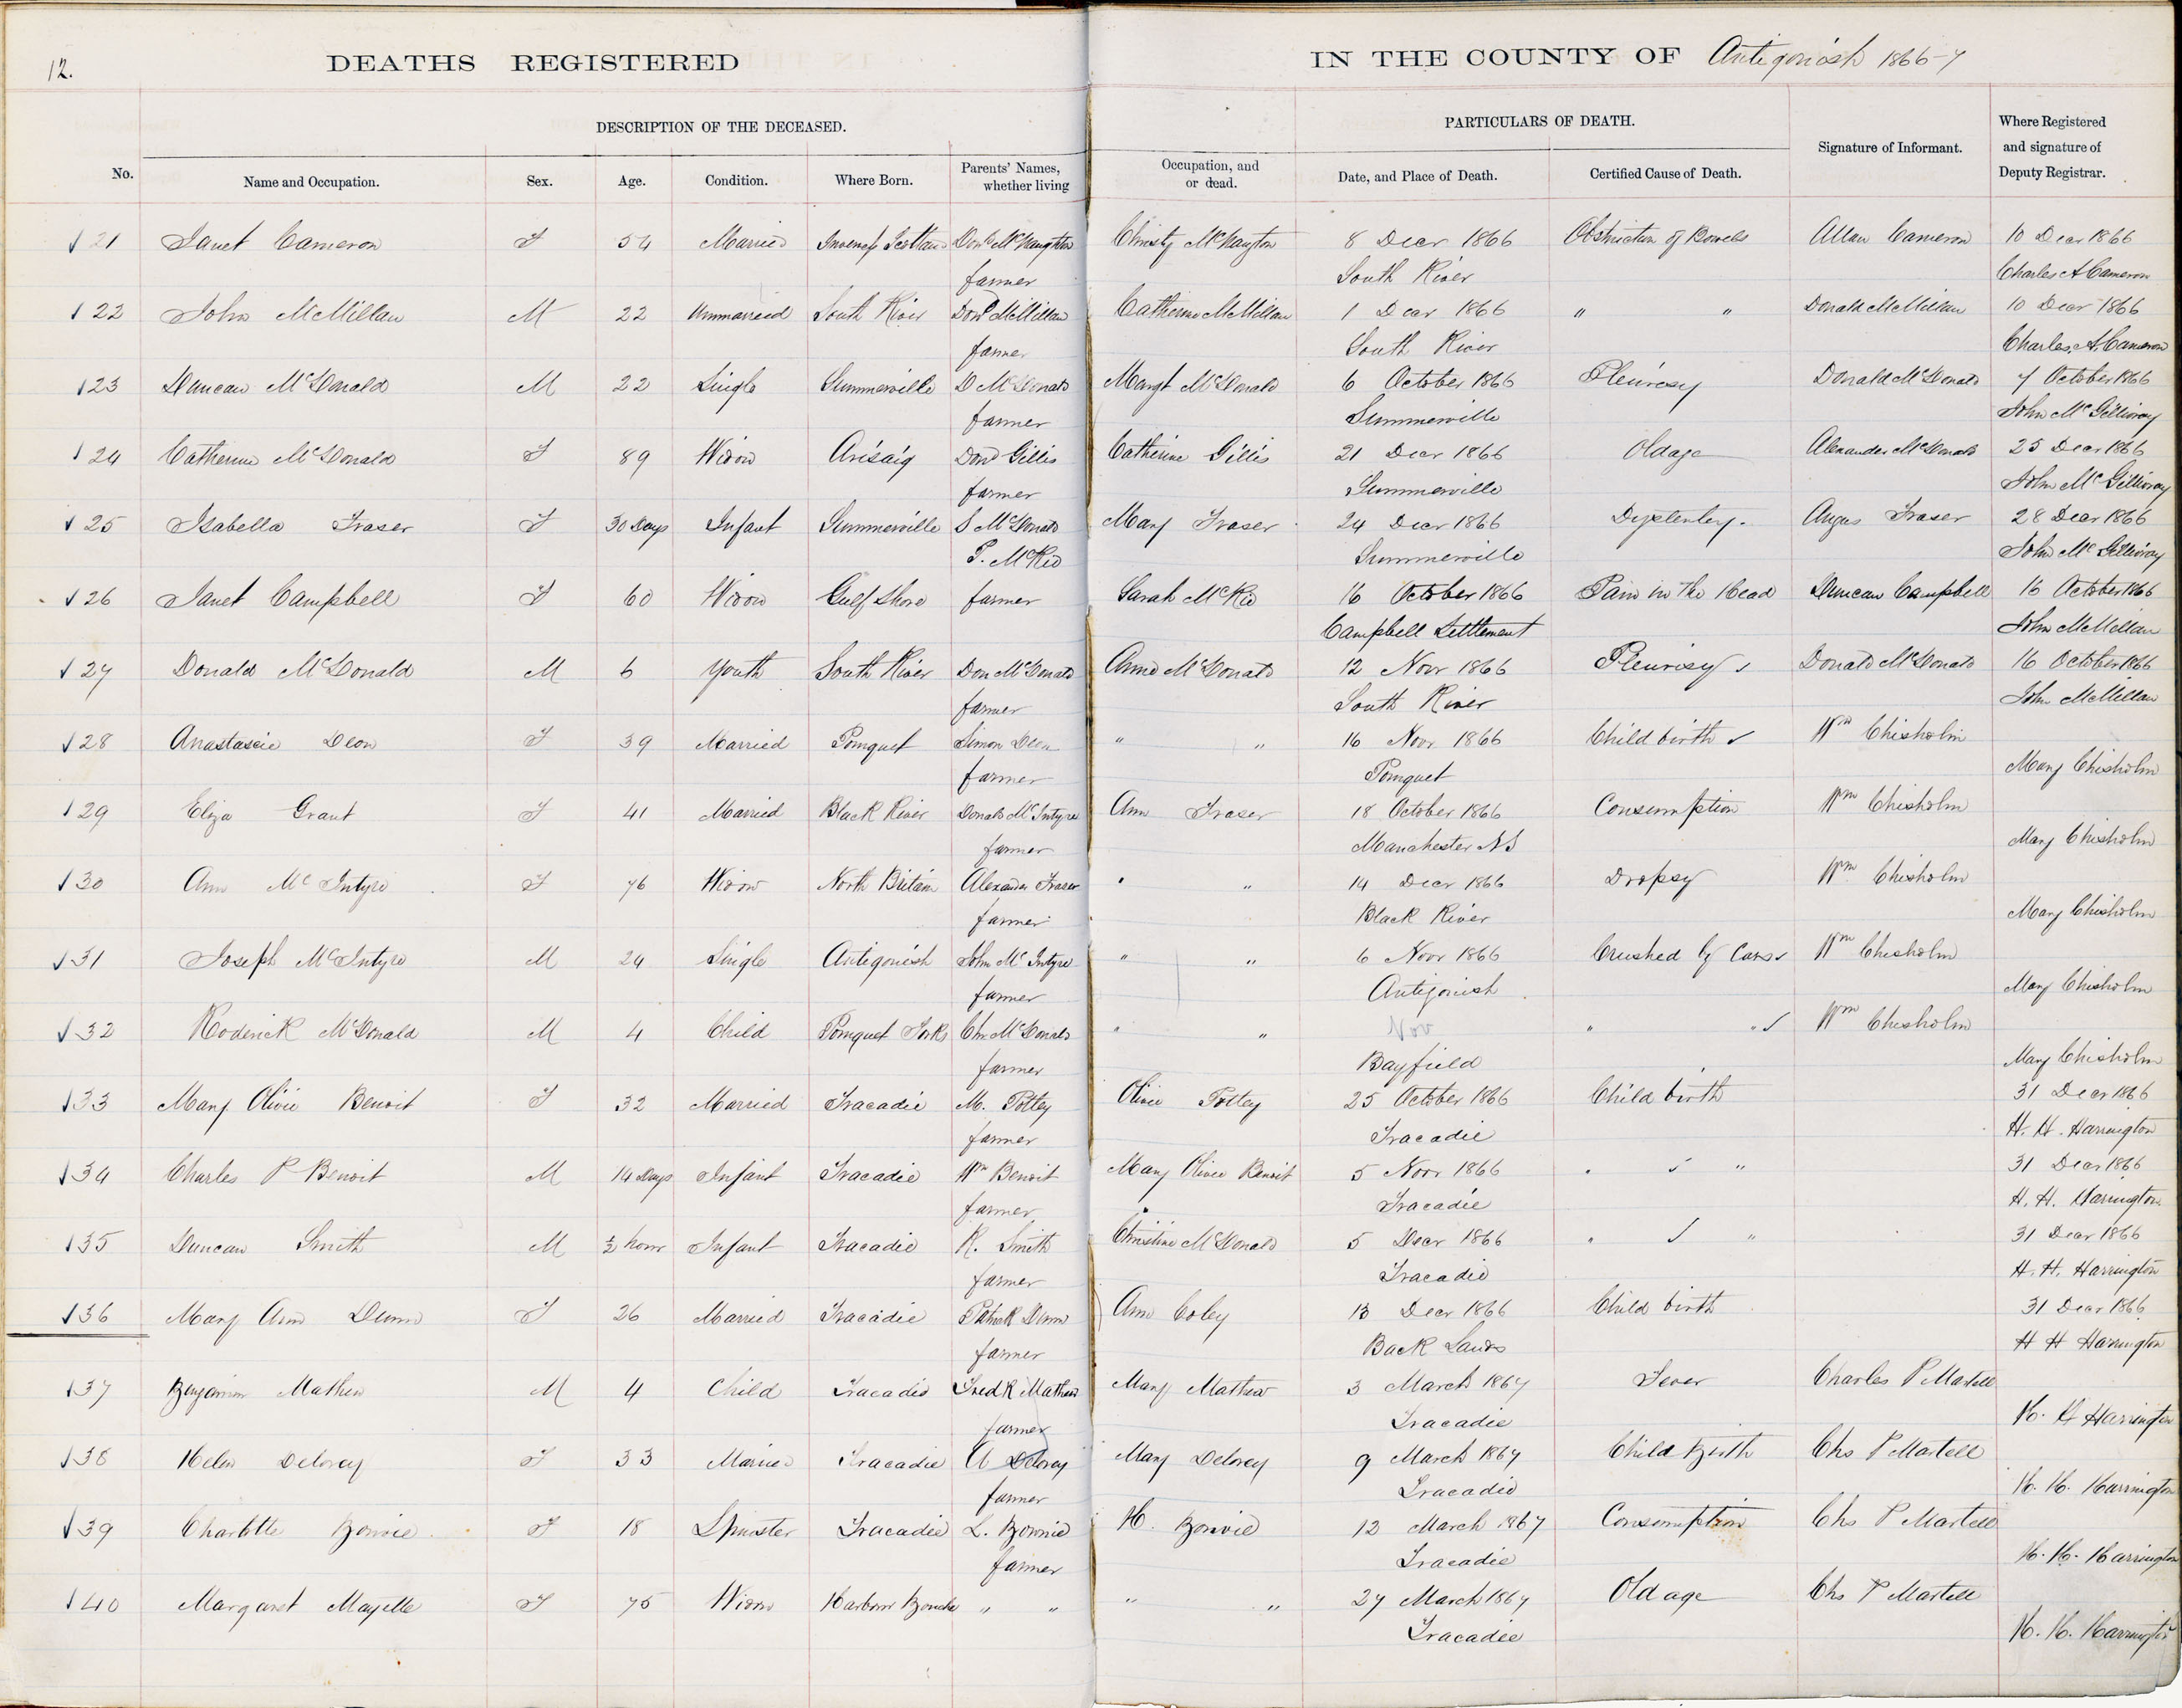 12.
DEATHS REGISTERED IN THE COUNTY OF Antigonish 1866-7
DESCRIPTION OF THE DECEASED. PARTICULARS OF DEATH.
No. Name and Occupation. Sex. Age. Condition. Where Born. Parents' Names, whether living Occupation, and or dead. Date, and Place of Death. Certified Cause of Death. Signature of Informant. Where Registered and signature of Deputy Registrar.
21 Janet Cameron F 54 Married Scotland Christy McNayton 8 Decr 1866 Obstruction of Bowels Allan Cameron 10 Decr 1866
farmer South River Charles A Cameron
22 John McMillan M 22 Unmarried South River Dond McMillan Catherine McMillan 1 Decr 1866 " " Donald McMillan 10 Decr 1866
farmer South River Charles. A. Cameron
23 Duncan McDonald M 22 Single Summerville D McDonald Margt McDonald 6 October 1866 Pleurisy Donald McDonald 7 October 1866
farmer Summerville John McGillivray
24 Catherine McDonald F 89 Widow Arisaig Dond Gillis Catherine Gillis 21 Decr 1866 Old age Alexander McDonald 25 Decr 1866
farmer Summerville John McGillivray
25 Isabella Fraser F 30 Days Infant Summerville S McDonald Mary Fraser 24 Decr 1866 Angus Fraser 28 Decr 1866
P. McKio Summerville John McGillivray
26 Janet Campbell F 60 Widow Gulf Shore farmer Sarah McKio 16 October 1866 Pain in the Head Duncan Campbell 16 October 1866
Campbell Settlement John McMillan
27 Donald McDonald M 6 Youth South River Don McDonald Anne McDonald 12 Novr 1866 Pleurisy Donald McDonald 16 October 1866
farmer South River John McMillan
28 Anastascie Deon F 39 Married Pomquet Simon Deon " " 16 Novr 1866 Child birth Wm Chisholm
farmer Pomquet Mary Chisholm
29 Eliza Grant F 41 Married Black River Donald McIntyre Ann Fraser 18 October 1866 Consumption Wm Chisholm
farmer Manchester NS Mary Chisholm
30 Ann McIntyre F 76 Widow North Britain Alexander Fraser " " 14 Decr 1866 Dropsy Wm Chisholm
farmer Black River Mary Chisholm
31 Joseph McIntyre M 24 Single Antigonish John McIntyre " " 6 Novr 1866 Crushed by Cars Wm Chisholm
farmer Antigonish Mary Chisholm
32 Roderick McDonald M 4 Child Pomquet Forks McDonald " " Nov " " Wm Chisholm
farmer Bayfield Mary Chisholm
33 Mary Olivie Benoit F 32 Married Tracadie M. Pottey Olivie Pottey 25 October 1866 Child birth 31 Decr 1866
farmer Tracadie H. H. Harrington
34 Charles P Benoit M 14 Days Infant Tracadie Wm Benoit Mary Olivie Benoit 5 Novr 1866 " " 31 Decr 1866
farmer Tracadie H. H. Harrington
35 Duncan Smith M ½ hour Infant Tracadie R. Smith Christine McDonald 5 Decr 1866 " " 31 Decr 1866
farmer Tracadie H. H. Harrington
36 Mary Ann Dunn F 26 Married Tracadie Patrick Dunn Ann Coley 13 Decr 1866 Child birth 31 Decr 1866
farmer Back Lands H H Harrington
37 Benjamin Mathew M 4 Child Tracadie Fredk Mathew Mary Mathew 3 March 1867 Fever Charles P Martell
farmer Tracadie H. H Harrington
38 Helen Delorey F 33 Married Tracadie A Delorey Mary Delorey 9 March 1867 Child Birth Chs P Martell
farmer Tracadie H. H. Harrington
39 Charlotte Bonvie F 18 Spinster Tracadie L. Bonvie H. Bonvie 12 March 1867 Consumption Chs P Martell
farmer Tracadie H. H. Harrington
40 Margaret Mayelle F 75 Widow Harbour Bouche " " " " 27 March 1867 Old age Chs P Martell
Tracadie H. H. Harrington